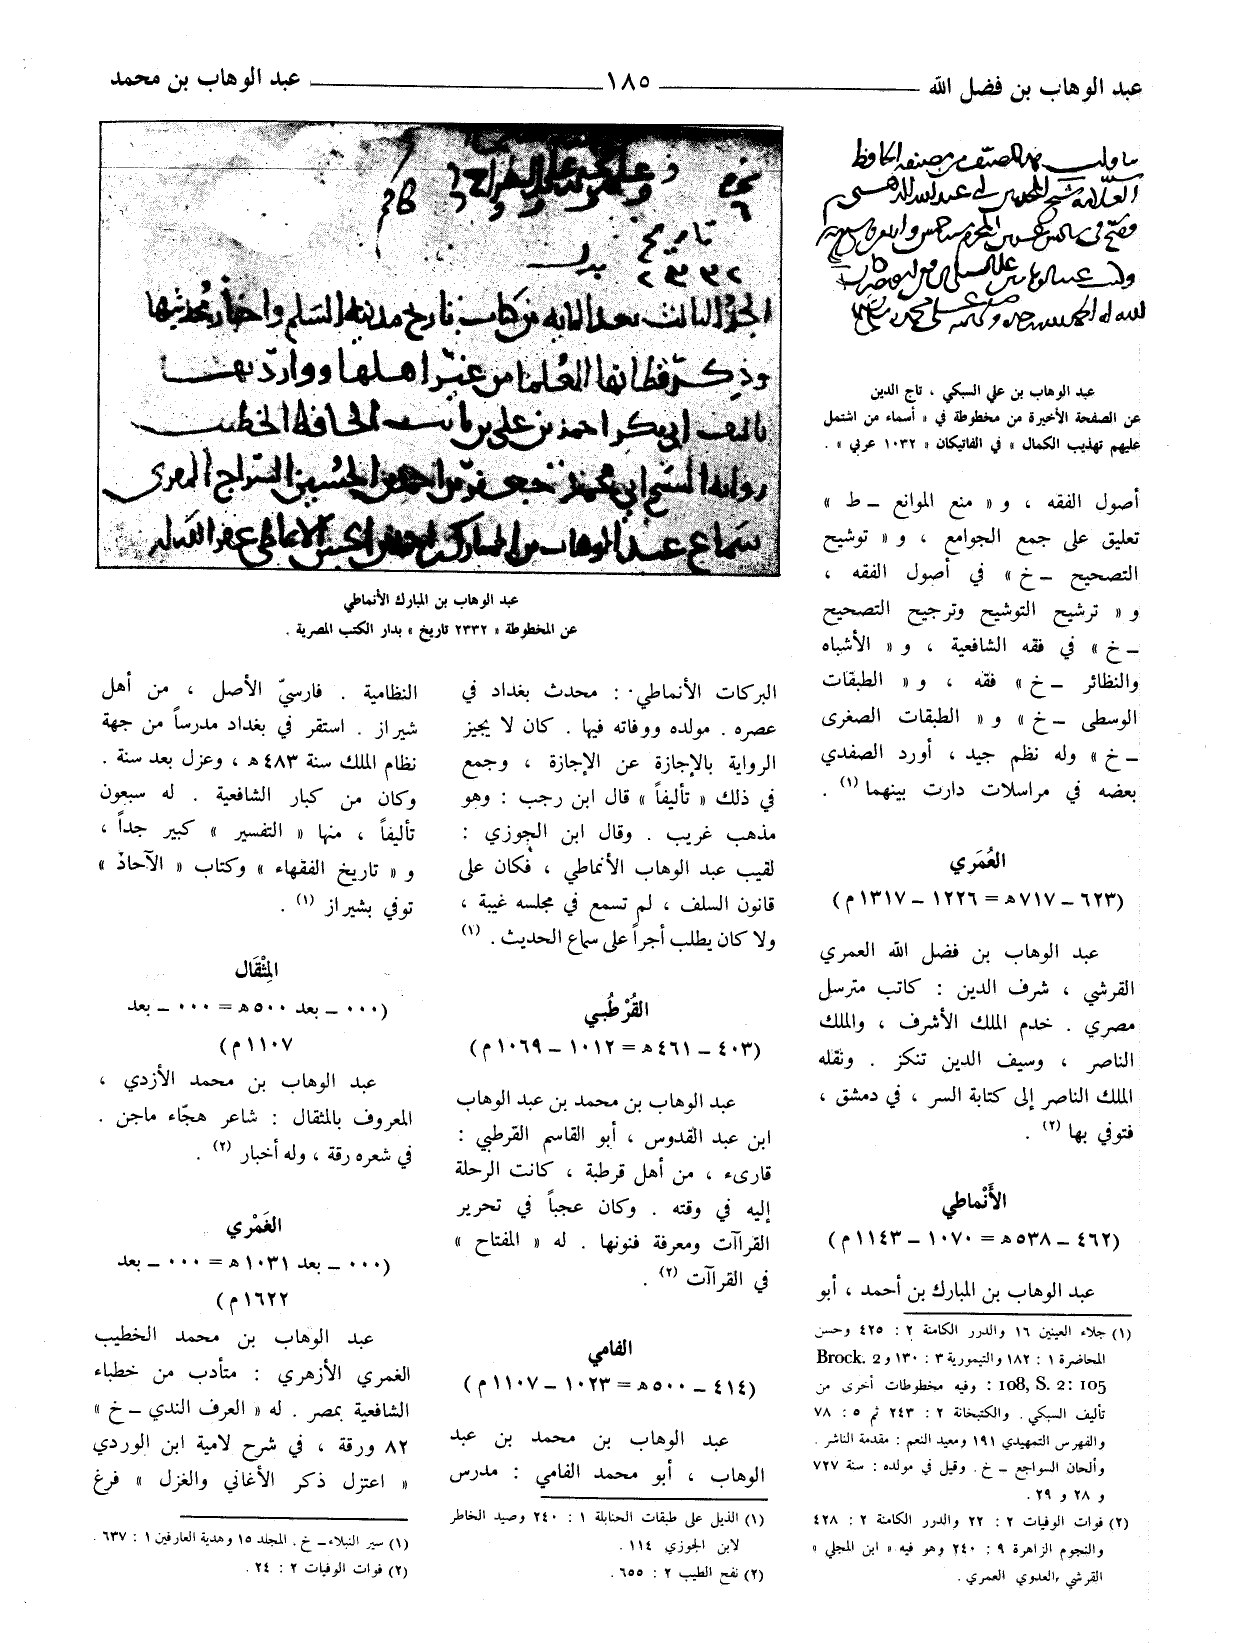 عبد الوهاب بن فضل الله
١٨٥
عبد الوهاب بن محمد
عبد الوهاب بن علي السبكي ، تاج الدين
عن الصفحة الأخيرة من مخطوطة في « أسماء من اشتمل
عليهم تهذيب الكمال » في الفاتيكان « ١٠٣٢ عربي » .
أصول الفقه ، و « منع الموانع ــ ط »
تعليق على جمع الجوامع ، و « توشيح
التصحيح ــ خ » في أصول الفقه ،
و « ترشيح التوشيح وترجيح التصحيح
ــ خ » في فقه الشافعية ، و « الأشباه
والنظائر ــ خ » فقه ، و « الطبقات
الوسطى ــ خ » و « الطبقات الصغرى
ــ خ » وله نظم جيد ، أورد الصفدي
بعضه في مراسلات دارت بينهما (١) .
العُمَري
(٦٢٣ ــ ٧١٧ هـ = ١٢٢٦ ــ ١٣١٧ م)
عبد الوهاب بن فضل الله العمري
القرشي ، شرف الدين : كاتب مترسل
مصري . خدم الملك الأشرف ، والملك
الناصر ، وسيف الدين تنكز . ونقله
الملك الناصر إلى كتابة السر ، في دمشق ،
فتوفي بها (٢) .
الأَنْماطي
(٤٦٢ ــ ٥٣٨ هـ = ١٠٧٠ ــ ١١٤٣ م)
عبد الوهاب بن المبارك بن أحمد ، أبو
(١) جلاء العينين ١٦ والدرر الكامنة ٢ : ٤٢٥ وحسن
المحاضرة ١ : ١٨٢ والتيمورية ٣ : ١٣٠ و Brock. 2
108, S. 2: 105 : وفيه مخطوطات أخرى من
تأليف السبكي . والكتبخانة ٢ : ٢٤٣ ثم ٥ : ٧٨
والفهرس التمهيدي ١٩١ ومعيد النعم : مقدمة الناشر .
وألحان السواجع ــ خ . وقيل في مولده : سنة ٧٢٧
و ٢٨ و ٢٩ .
(٢) فوات الوفيات ٢ : ٢٢ والدرر الكامنة ٢ : ٤٢٨
والنجوم الزاهرة ٩ : ٢٤٠ وهو فيه « ابن المجلي »
القرشي ,العدوي العمري .
الجزء الثالث بعد المايه من كتاب تاريخ مدينة السلم واخبار محدثيها
وذكر قطانها العلما من غير اهلها وواردبها
تاليف ابي بكر احمد بن علي بن ثابت الحافظ الخطيب
عبد الوهاب بن المبارك الأنماطي
عن المخطوطة « ٢٣٣٢ تاريخ » بدار الكتب المصرية .
البركات الأنماطي : محدث بغداد في
عصره . مولده ووفاته فيها . كان لا يجيز
الرواية بالإجازة عن الإجازة ، وجمع
في ذلك « تأليفاً » قال ابن رجب : وهو
مذهب غريب . وقال ابن الجوزي :
لقيب عبد الوهاب الأنماطي ، فكان على
قانون السلف ، لم تسمع في مجلسه غيبة ،
ولا كان يطلب أجراً على سماع الحديث . (١)
القُرْطُبي
(٤٠٣ ــ ٤٦١ هـ = ١٠١٢ ــ ١٠٦٩ م)
عبد الوهاب بن محمد بن عبد الوهاب
ابن عبد القدوس ، أبو القاسم القرطبي :
قارىء ، من أهل قرطبة ، كانت الرحلة
إليه في وقته . وكان عجباً في تحرير
القراآت ومعرفة فنونها . له « المفتاح »
في القراآت (٢) .
الفامي
(٤١٤ ــ ٥٠٠ هـ = ١٠٢٣ ــ ١١٠٧ م)
عبد الوهاب بن محمد بن عبد
الوهاب ، أبو محمد الفامي : مدرس
(١) الذيل على طبقات الحنابلة ١ : ٢٤٠ وصيد الخاطر
لابن الجوزي ١١٤ .
(٢) نفح الطيب ٢ : ٦٥٥ .
النظامية . فارسيّ الأصل ، من أهل
شيراز . استقر في بغداد مدرساً من جهة
نظام الملك سنة ٤٨٣ هـ ، وعزل بعد سنة .
وكان من كبار الشافعية . له سبعون
تأليفاً ، منها « التفسير » كبير جداً ،
و « تاريخ الفقهاء » وكتاب « الآحاد »
توفي بشيراز (١) .
المِثْقَال
(٠٠٠ ــ بعد ٥٠٠ هـ = ٠٠٠ ــ بعد
١١٠٧ م)
عبد الوهاب بن محمد الأزدي ،
المعروف بالمثقال : شاعر هجّاء ماجن .
في شعره رقة ، وله أخبار (٢) .
الغَمْري
(٠٠٠ ــ بعد ١٠٣١ هـ = ٠٠٠ ــ بعد
١٦٢٢ م)
عبد الوهاب بن محمد الخطيب
الغمري الأزهري : متأدب من خطباء
الشافعية بمصر . له « العرف الندي ــ خ »
٨٢ ورقة ، في شرح لامية ابن الوردي
« اعتزل ذكر الأغاني والغزل » فرغ
(١) سير النبلاء ــ خ . المجلد ١٥ وهدية العارفين ١ : ٦٣٧ .
(٢) فوات الوفيات ٢ : ٢٤ .